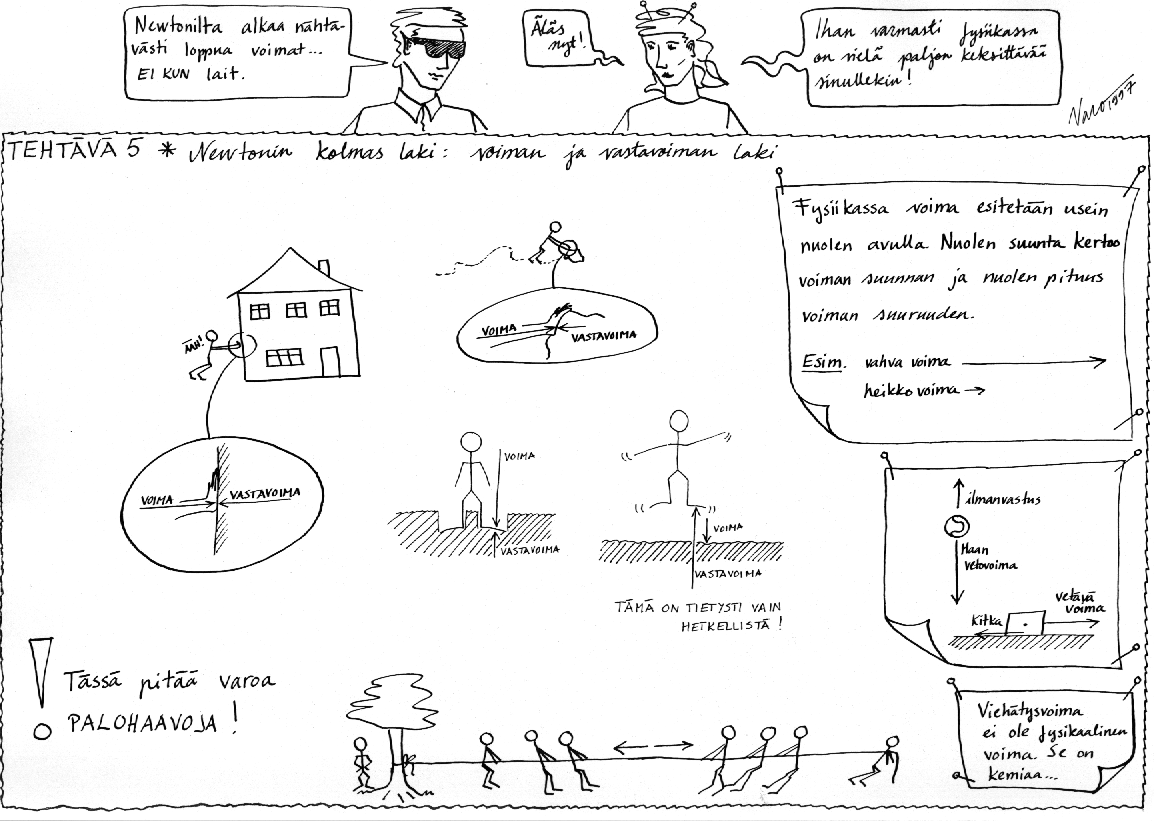 Newtonilta alkaa nähtä-
västi loppua voimat...
EI KUN lait.
Äläs
nyt!
Ihan varmasti fysiikassa
on vielä paljon keksittävää
sinullekin!
Varo 1997
TEHTÄVÄ 5 * Newtonin kolmas laki: voiman ja vastavoiman laki
Fysiikassa voima esitetään usein
nuolen avulla. Nuolen suunta kertoo
voiman suunnan ja nuolen pituus
voiman suuruuden.
Esim. vahva voima
heikko voima
ÄÄH!
VOIMA
VASTAVOIMA
VOIMA
VASTAVOIMA
VOIMA
VASTAVOIMA
VOIMA
VASTAVOIMA
TÄMÄ ON TIETYSTI VAIN
HETKELLISTÄ!
ilmanvastus
Maan
vetovoima
vetävä
voima
kitka
! Tässä pitää varoa
PALOHAAVOJA!
Viehätysvoima
ei ole fysikaalinen
voima. Se on
kemiaa...